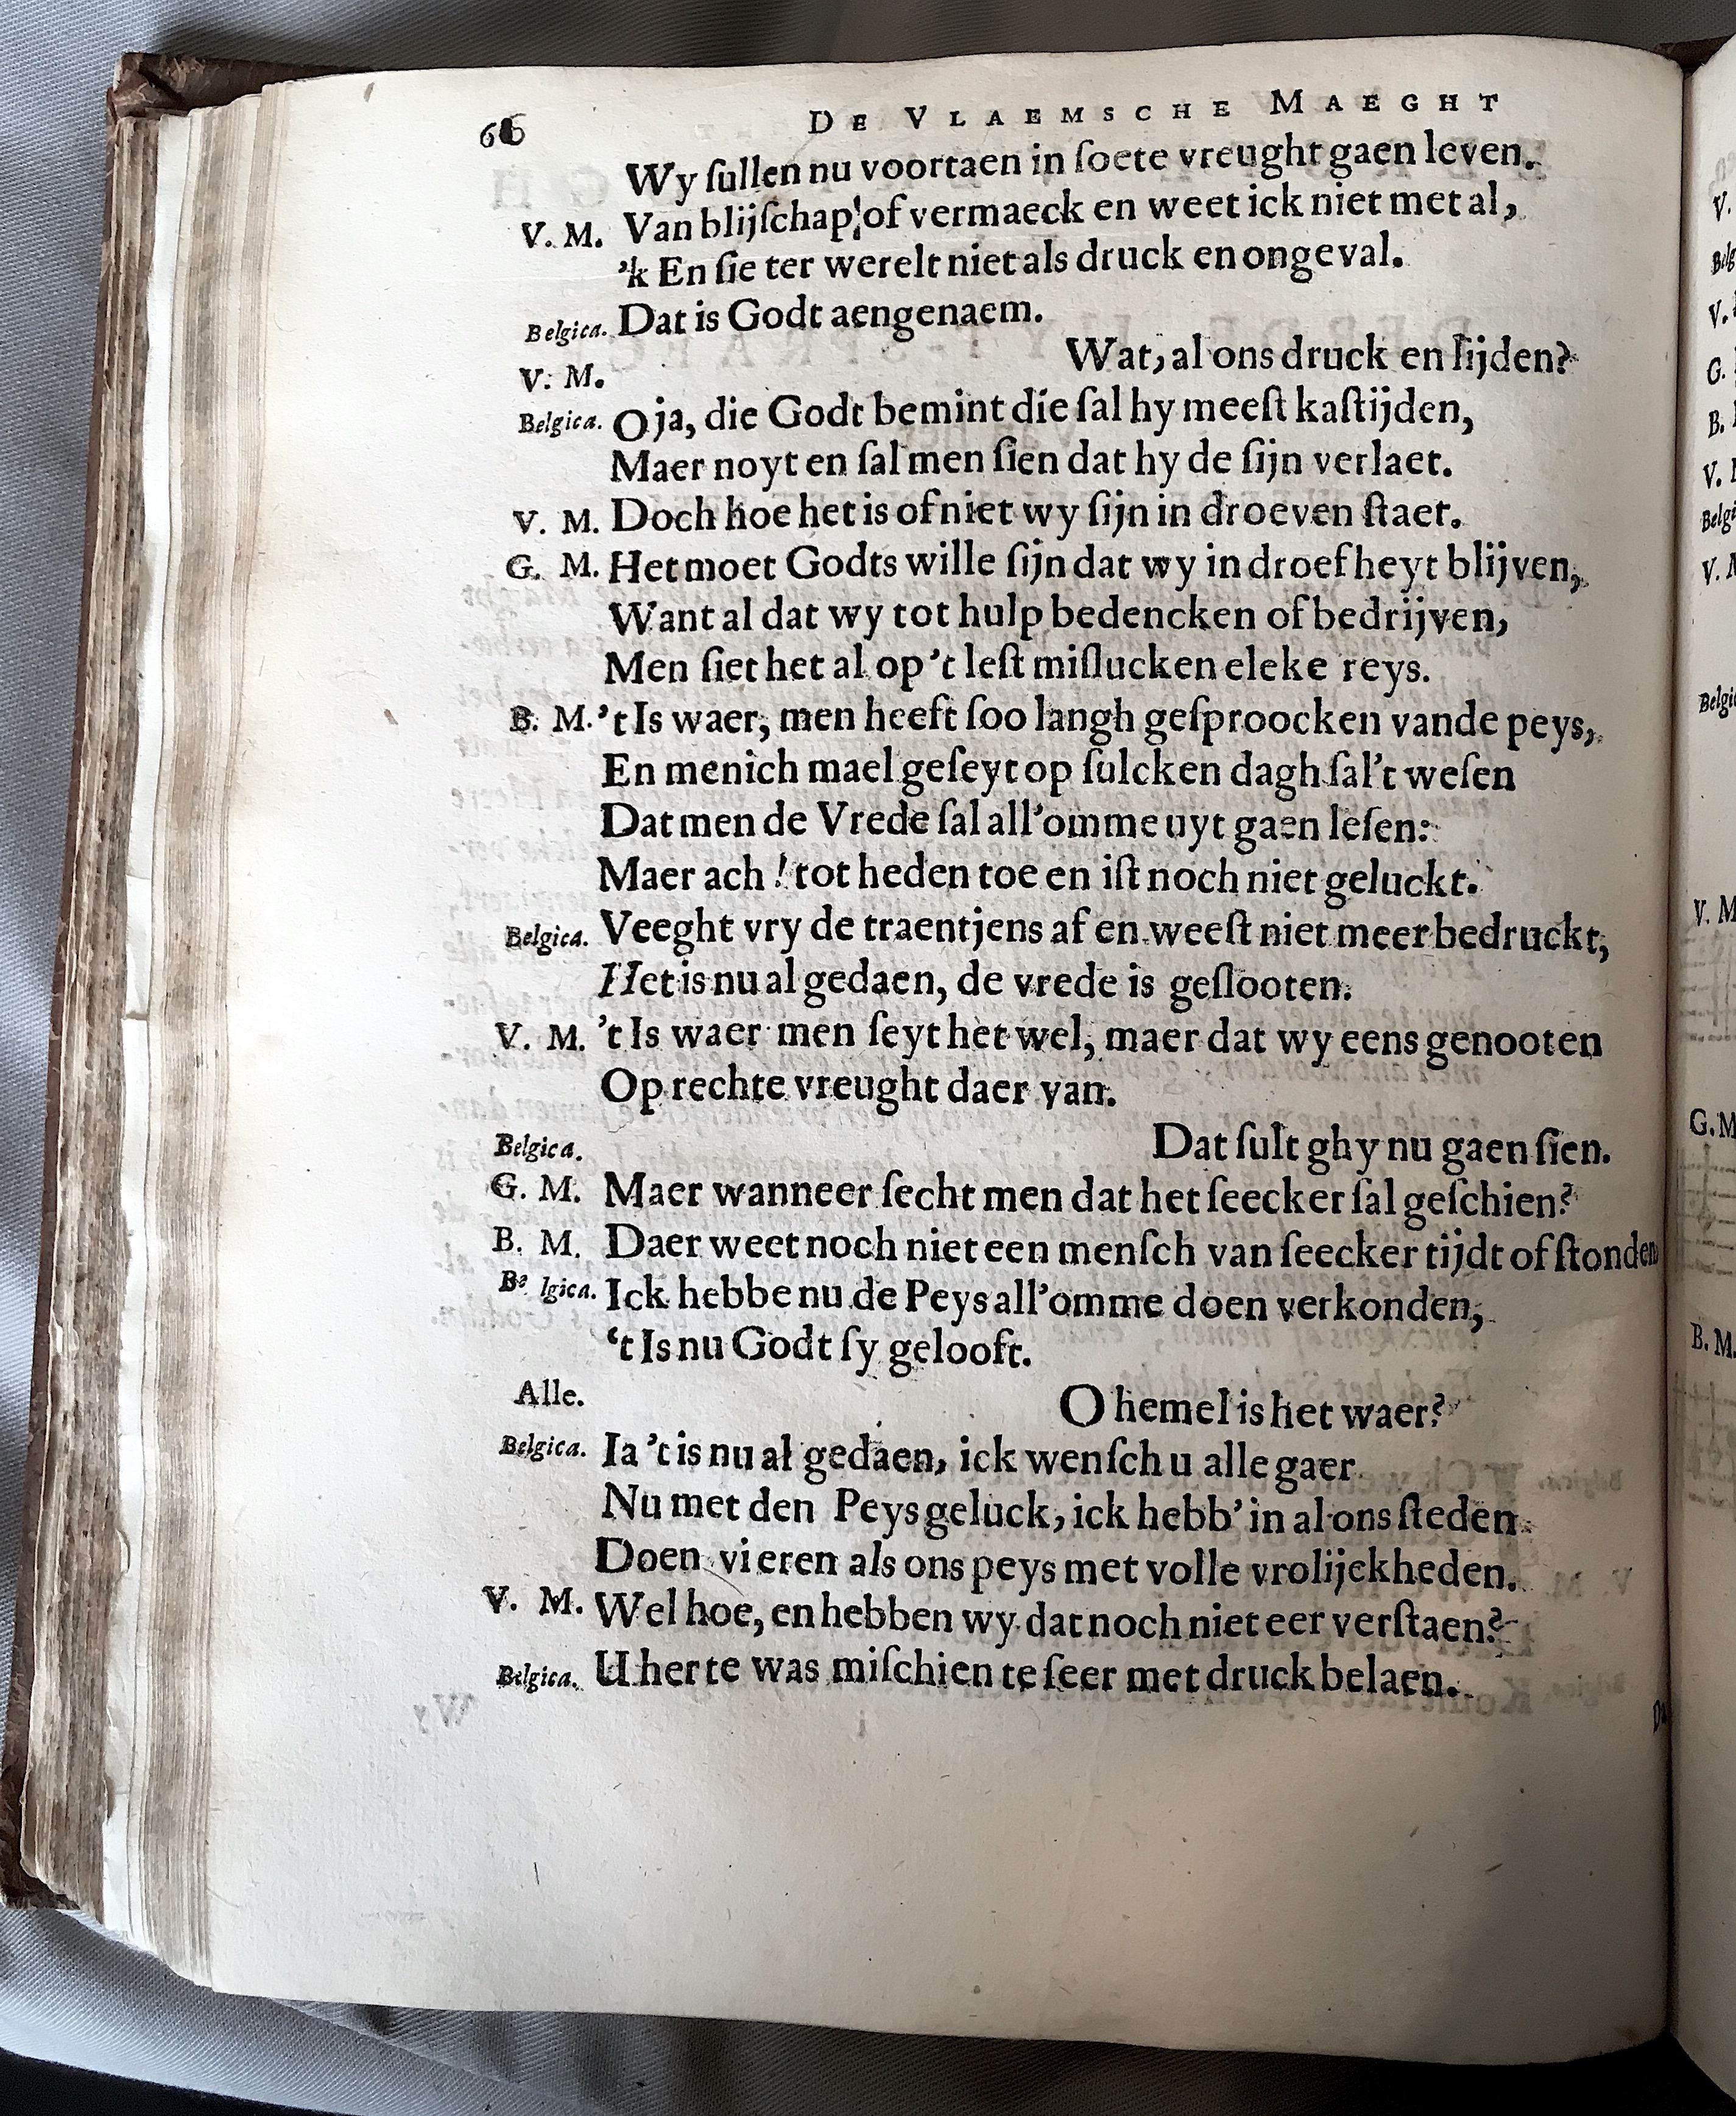 66 DE VLAEMSCHE MAEGHT
Wy ſullen nu voortaen in ſoete vreught gaen leven.
V. M. Van blijſchap of vermaeck en weet ick niet met al,
'k En ſie ter werelt niet als druck en ongeval.
Belgica. Dat is Godt aengenaem.
V. M. Wat, al ons druck en lijden?
Belgica. O ja, die Godt bemint die ſal hy meeſt kaſtijden,
Maer noyt en ſal men ſien dat hy de ſijn verlaet.
V. M. Doch hoe het is of niet wy ſijn in droeven ſtaet.
G. M. Het moet Godts wille ſijn dat wy in droefheyt blijven,
Want al dat wy tot hulp bedencken of bedrijven,
Men ſiet het al op 't leſt miſlucken eleke reys.
B. M. 't Is waer, men heeft ſoo langh geſproocken vande peys,
En menich mael geſeyt op ſulcken dagh ſal't weſen
Dat men de Vrede ſal all'omme uyt gaen leſen:
Maer ach ! tot heden toe en iſt noch niet geluckt.
Belgica. Veeght vry de traentjens af en weeſt niet meer bedruckt,
Het is nu al gedaen, de vrede is geſlooten.
V. M. 't Is waer men ſeyt het wel, maer dat wy eens genooten
Op rechte vreught daer van.
Belgica. Dat ſult ghy nu gaen ſien.
G. M. Maer wanneer ſecht men dat het ſeecker ſal geſchien?
B. M. Daer weet noch niet een menſch van ſeecker tijdt of ſtonden
Belgica. Ick hebbe nu de Peys all'omme doen verkonden,
't Is nu Godt ſy gelooft.
Alle. O hemel is het waer?
Belgica. Ia 't is nu al gedaen, ick wenſch u alle gaer
Nu met den Peys geluck, ick hebb' in al ons ſteden
Doen vieren als ons peys met volle vrolijckheden.
V. M. Wel hoe, en hebben wy dat noch niet eer verſtaen?
Belgica. U herte was miſchien te ſeer met druck belaen.